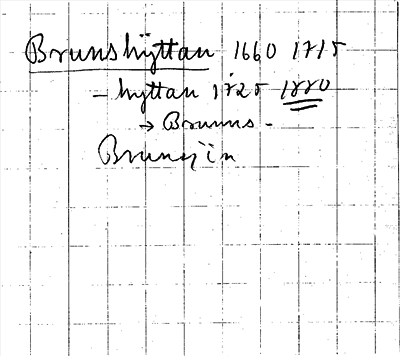 Brunshyttan 1660 1715
- hyttan 1725 1880
→ Brunns -
Brunsjön